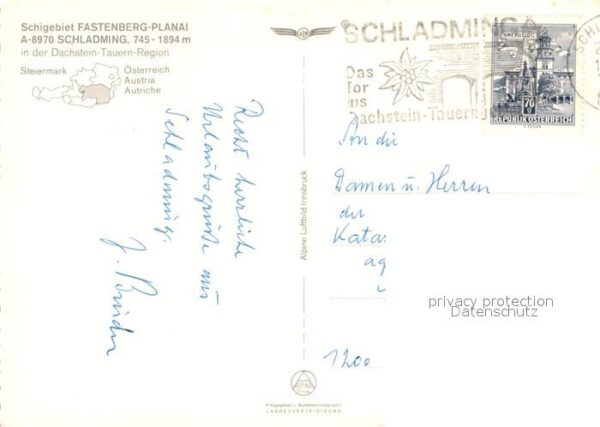 Schigebiet FASTENBERG-PLANAI
A-8970 SCHLADMING, 745 - 1894 m
in der Dachstein-Tauern-Region
Steiermark
Österreich
Austria
Autriche
Recht herzliche
Urlaubsgrüße aus
Schladming.
Alpine Luftbild Innsbruck
SCHLADMING
Das
Tor
ins
Dachstein-Tauern
SALZBURG
70
REPUBLIK ÖSTERREICH
SCHL
An die
Damen u. Herren
der
Kata
ag
1200
privacy protection
Datenschutz
Freigegeben v. Bundesministerium f.
LANDESVERTEIDIGUNG